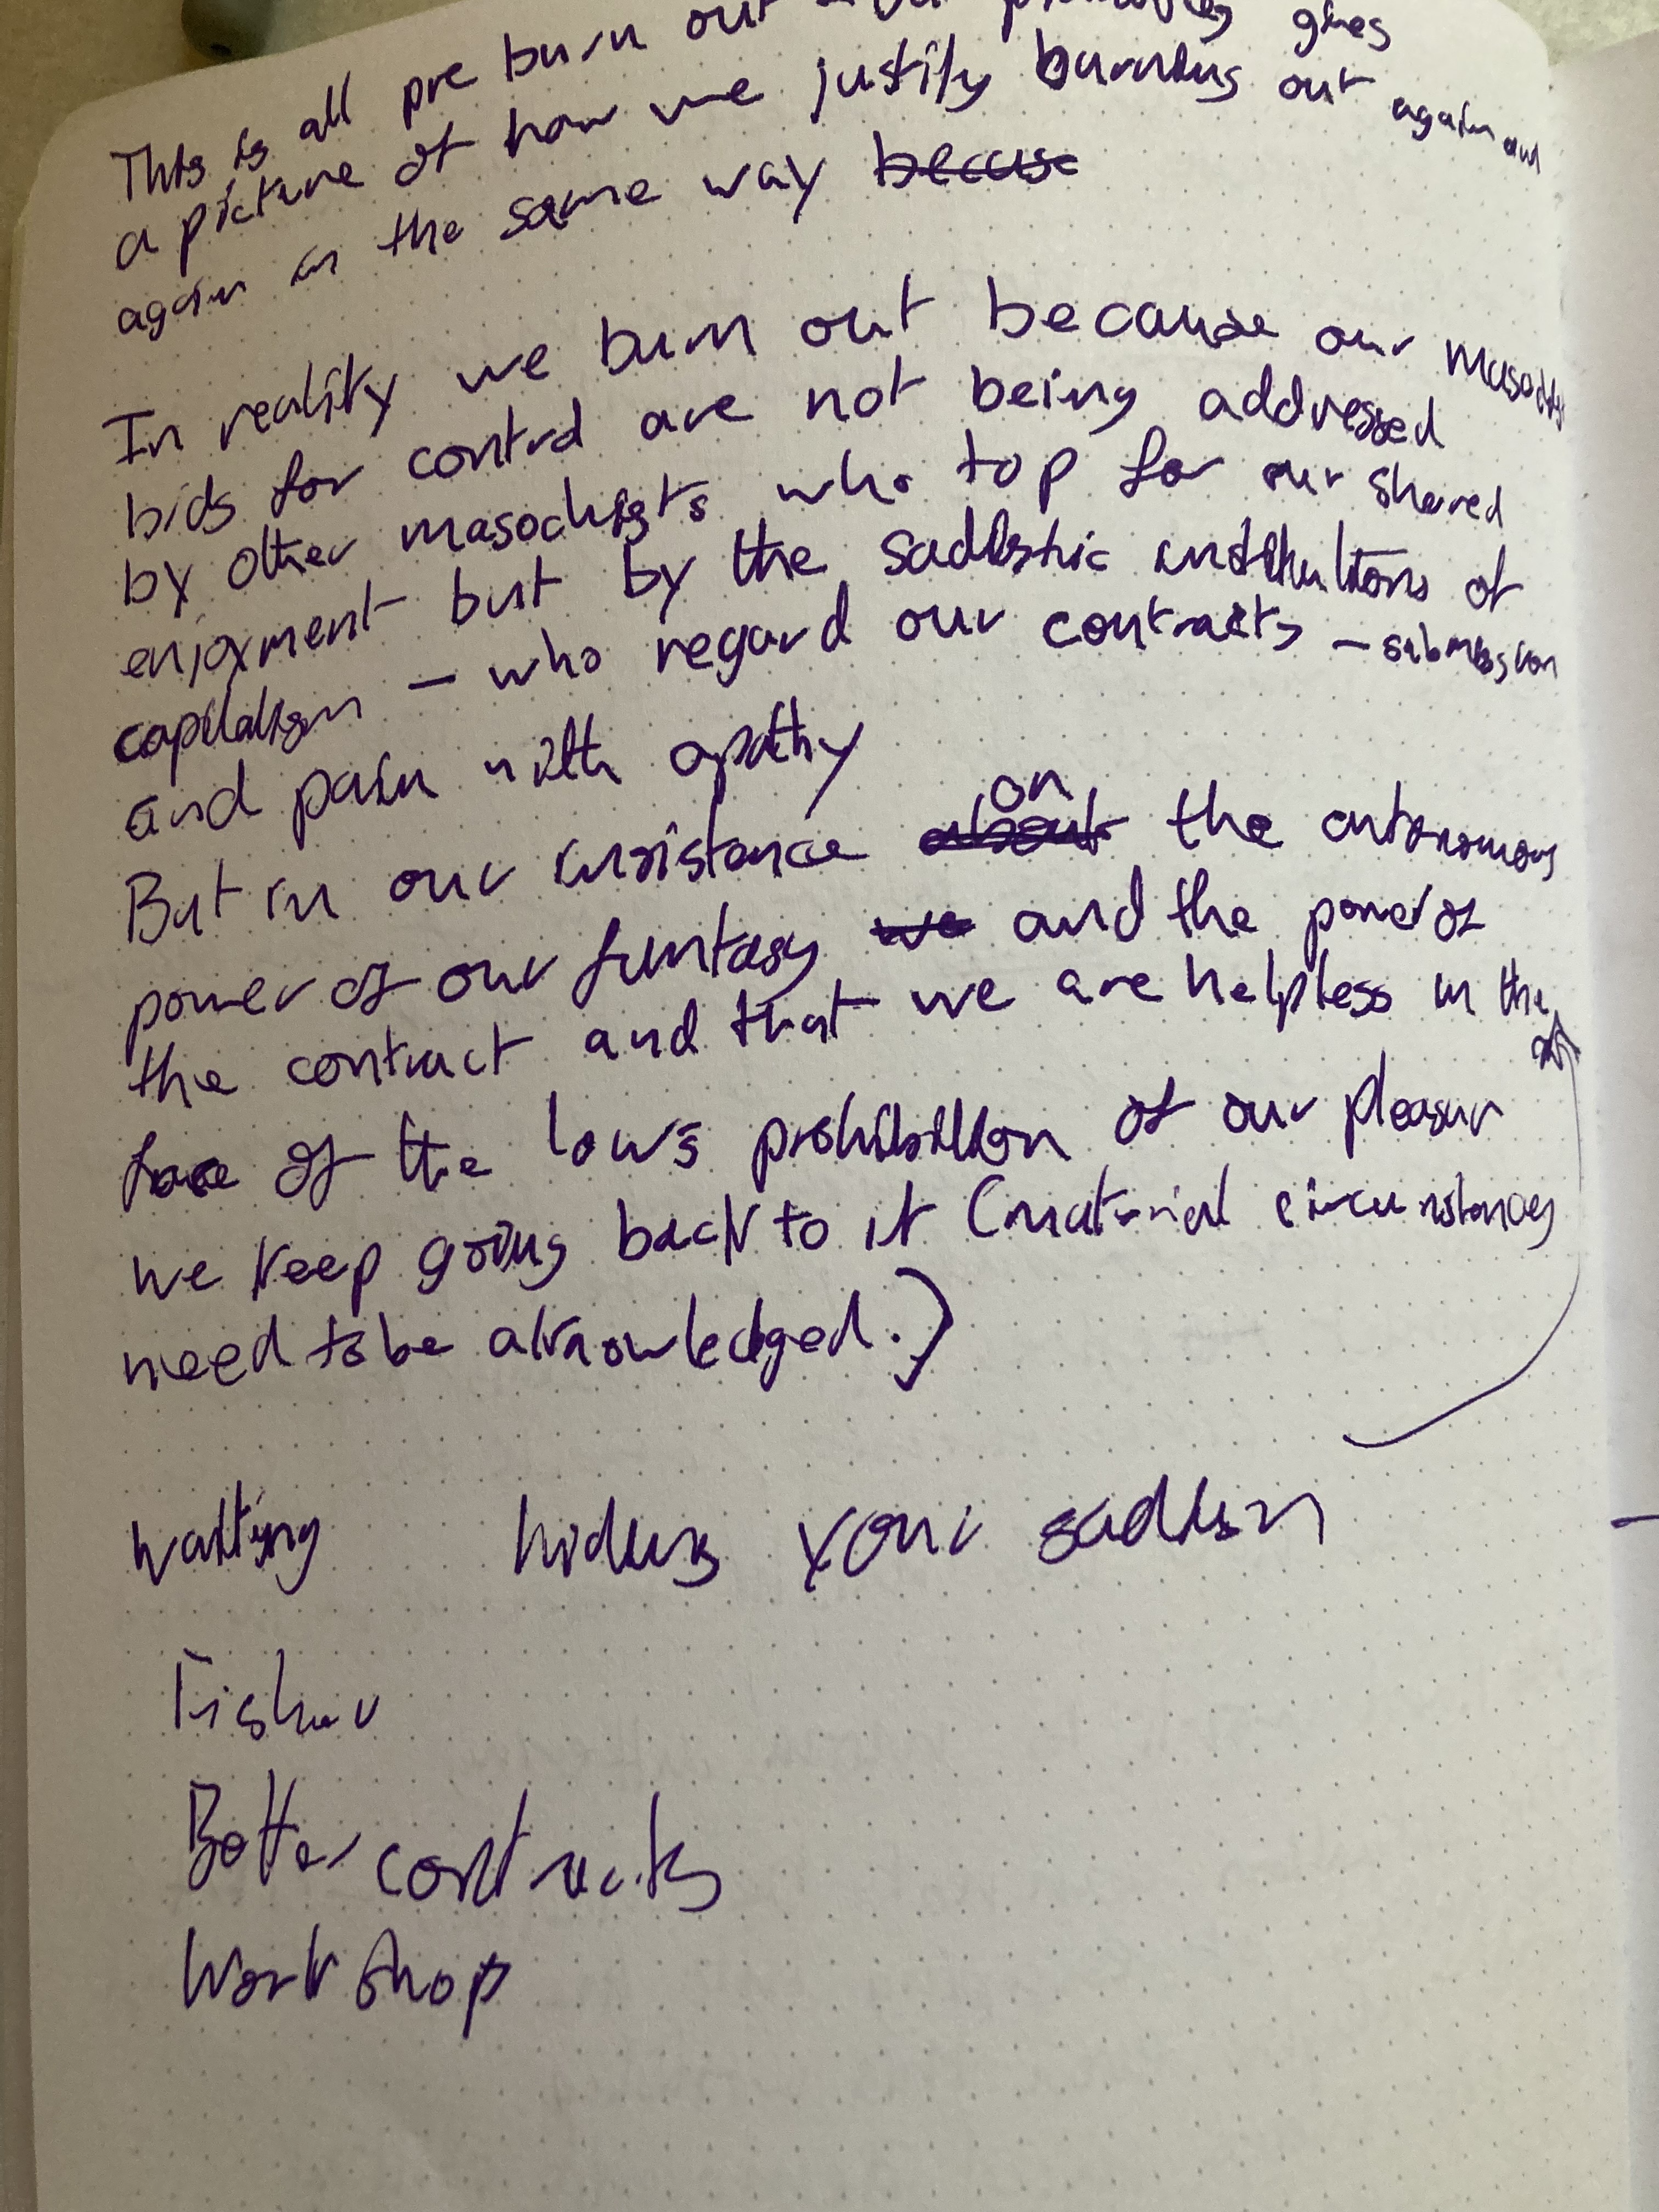 This is all pre burn out gives
a picture of how we justify burning out again and
again in the same way becuse
In reality we burn out because our
bids for control are not being addressed
by other masochists who top for our shared
enjoyment but by the sadistic institutions of
capitalism – who regard our contracts – submission
and pain with apathy
on
But in our insistance about the autonomous
power of our funtasy we and the power of
the contract and that we are helpless in the
face of the laws prohibition of our pleasur
we keep going back to it (material circumstances
need to be aknowledged.)
waiting hiding your sadism
Fisher
Better contracts
Workshop